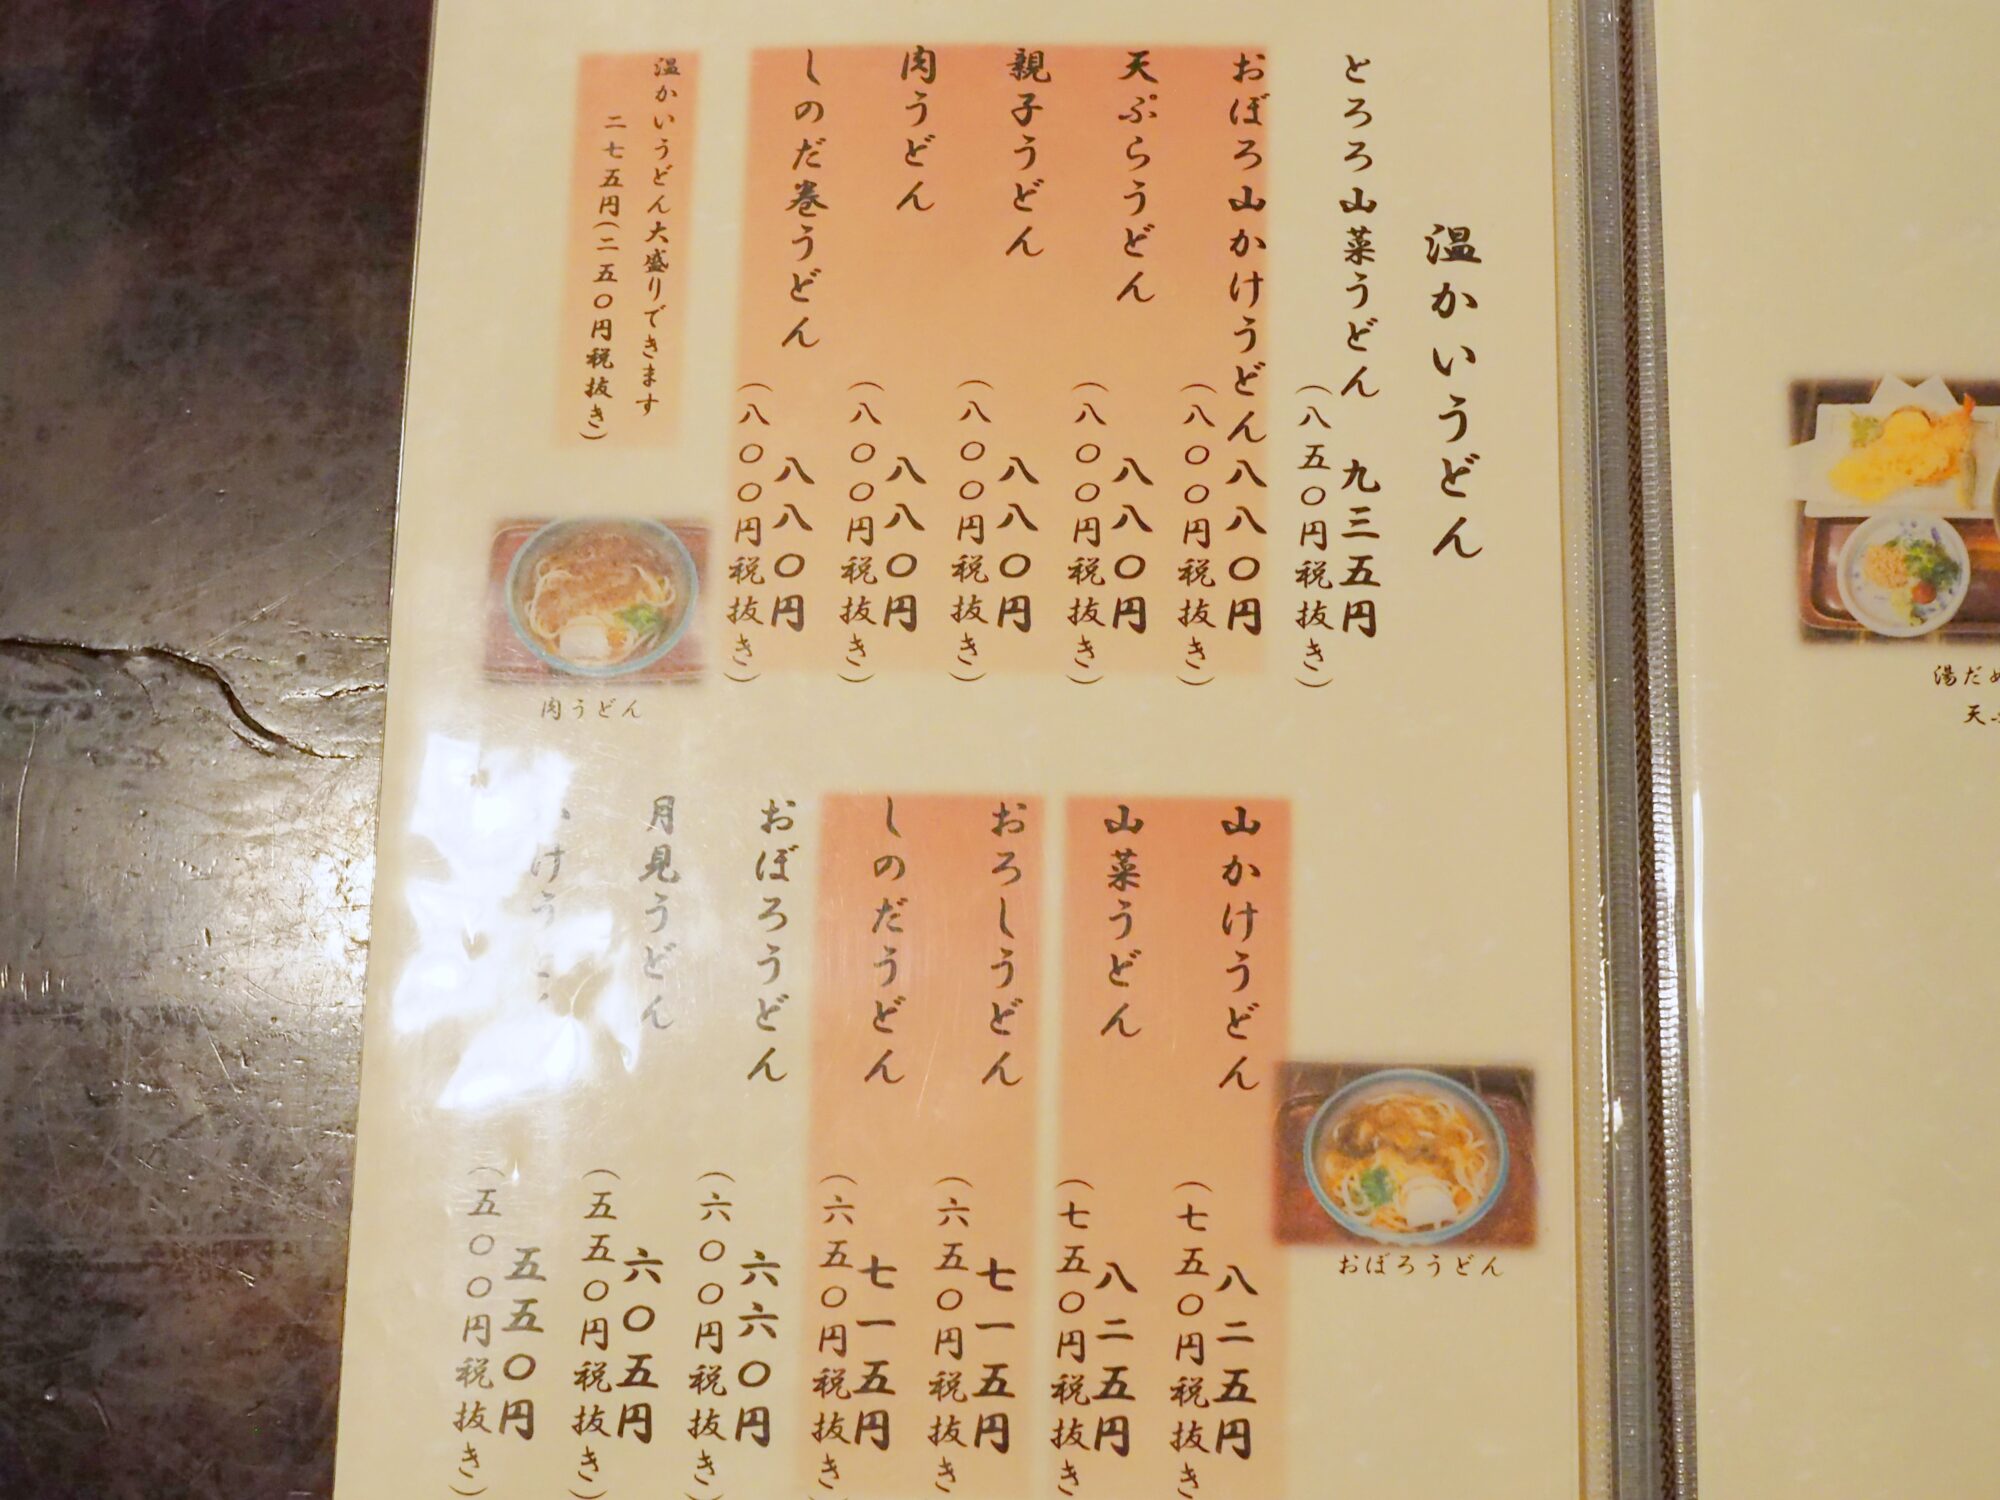 温かいうどん
とろろ山菜うどん 九三五円
(八五〇円税抜き)
おぼろ山かけうどん 八八〇円
(八〇〇円税抜き)
天ぷらうどん 八八〇円
(八〇〇円税抜き)
親子うどん 八八〇円
(八〇〇円税抜き)
肉うどん 八八〇円
(八〇〇円税抜き)
しのだ巻うどん 八八〇円
(八〇〇円税抜き)
温かいうどん大盛りできます
二七五円(二五〇円税抜き)
肉うどん
おぼろうどん
山かけうどん 八二五円
(七五〇円税抜き
山菜うどん 八二五円
(七五〇円税抜き
おろしうどん 七一五円
(六五〇円税抜き
しのだうどん 七一五円
(六五〇円税抜き)
おぼろうどん 六六〇円
(六〇〇円税抜き)
月見うどん 六〇五円
(五五〇円税抜き)
けう 五五〇円
(五〇〇円税抜き)
湯だめ
天